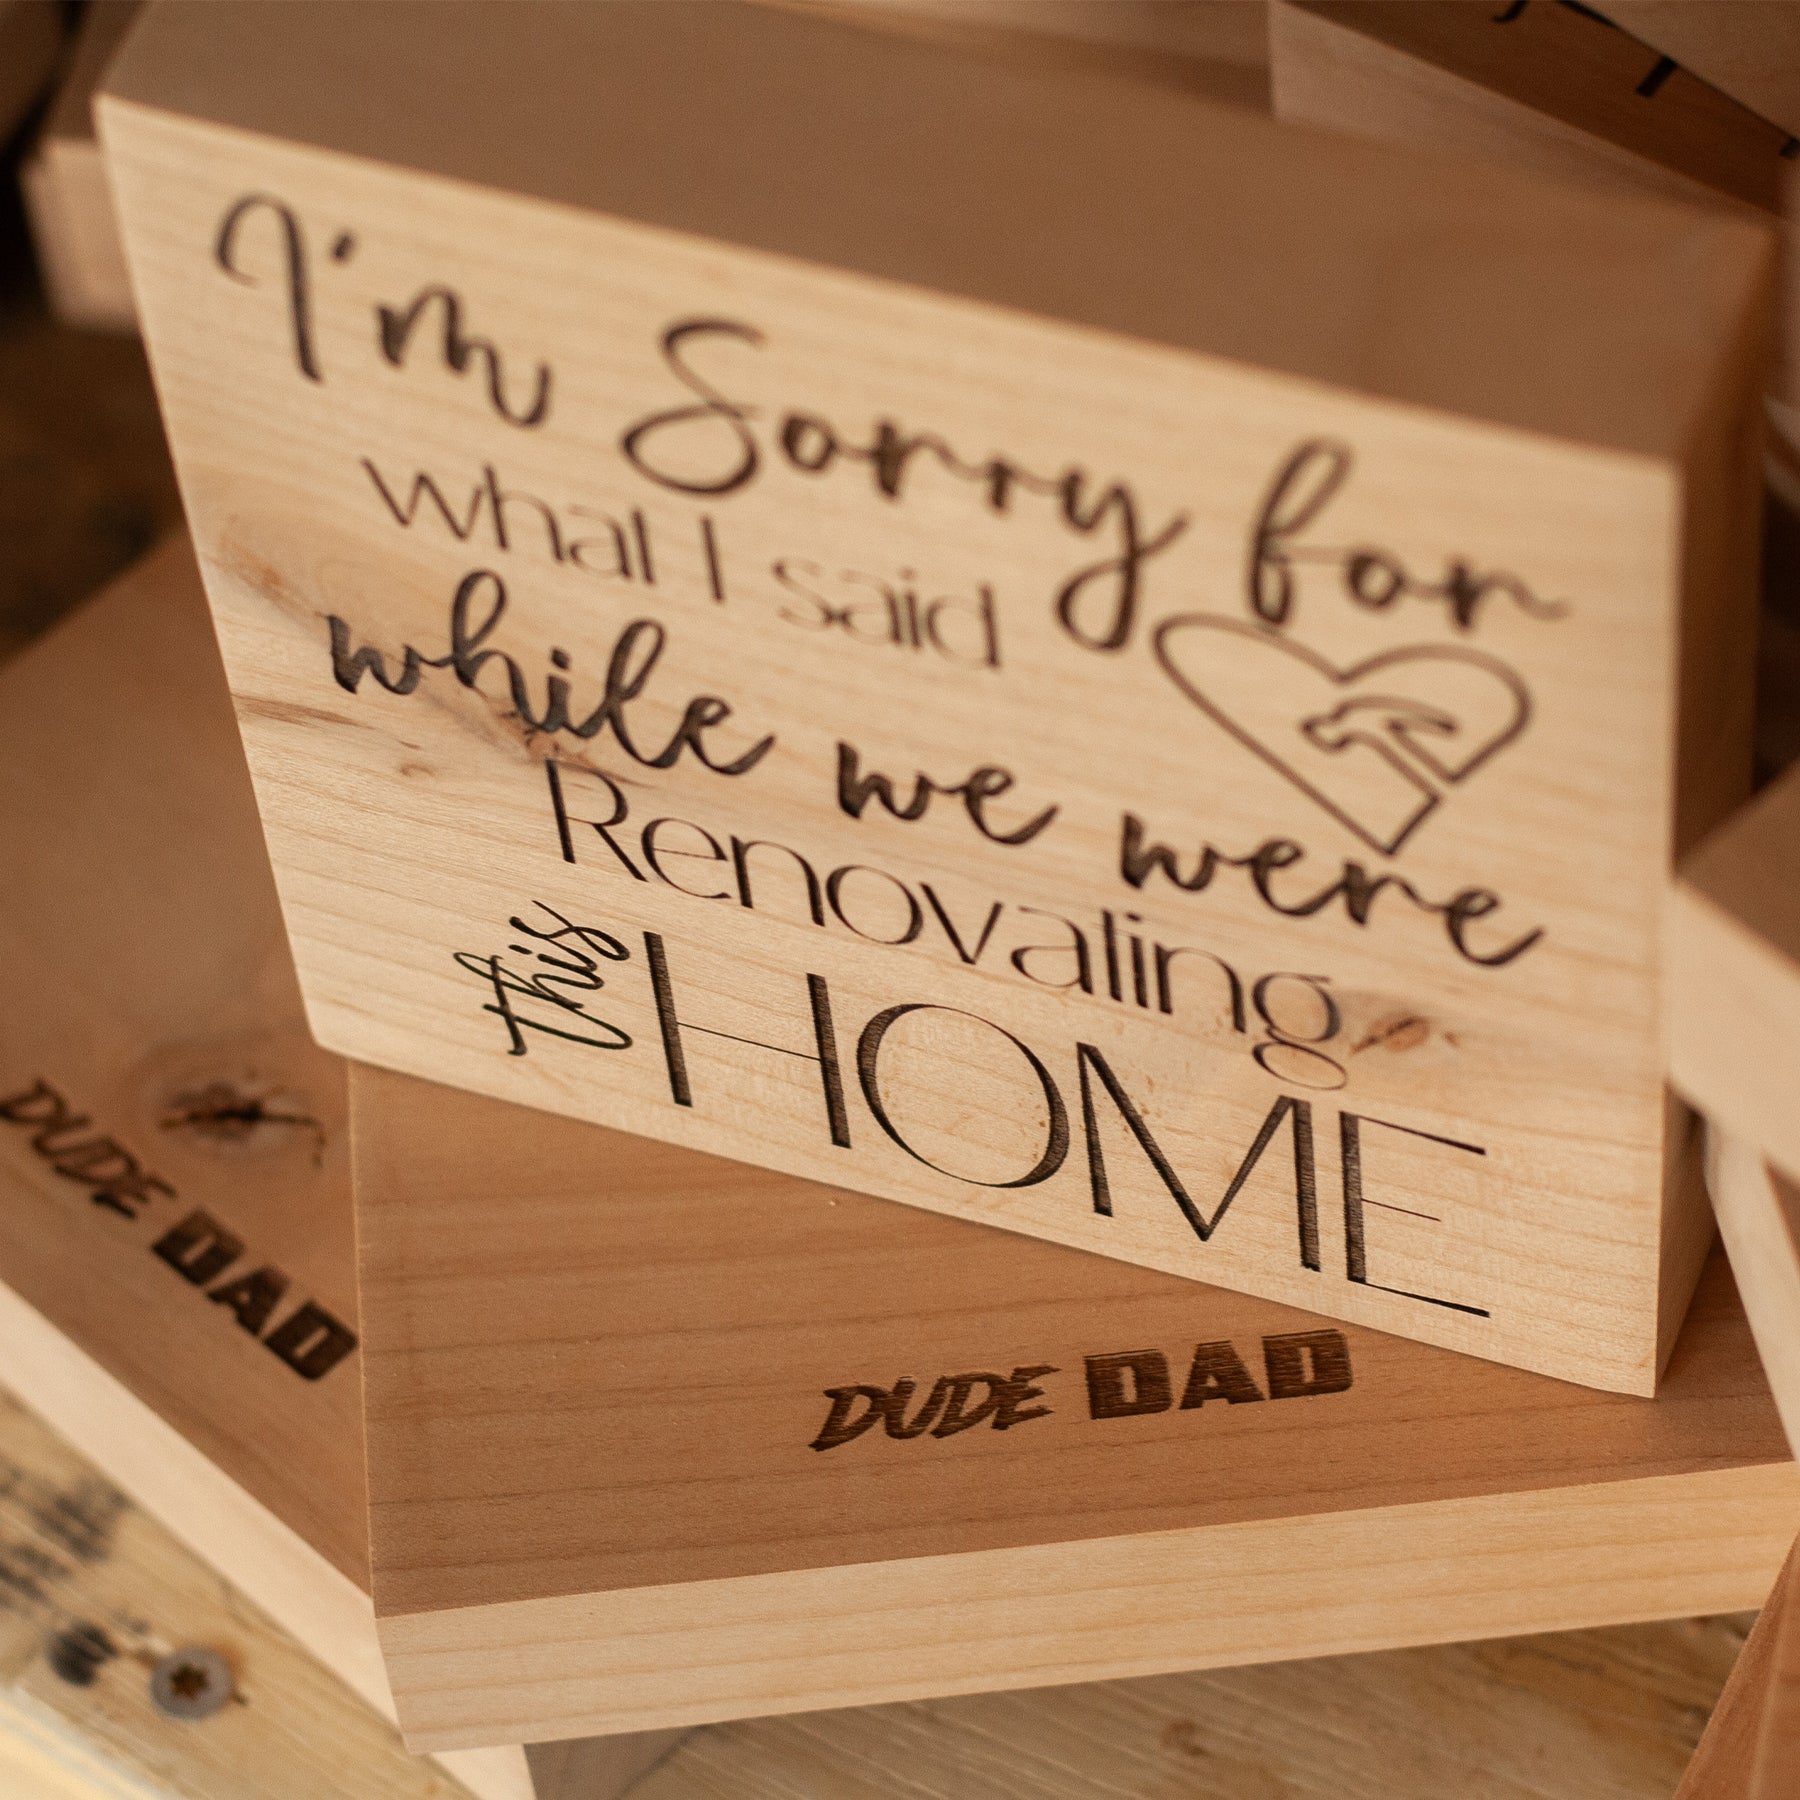 I'm Sorry for
what I said
while we were
Renovating
this HOME
DUDE DAD
DUDE DAD